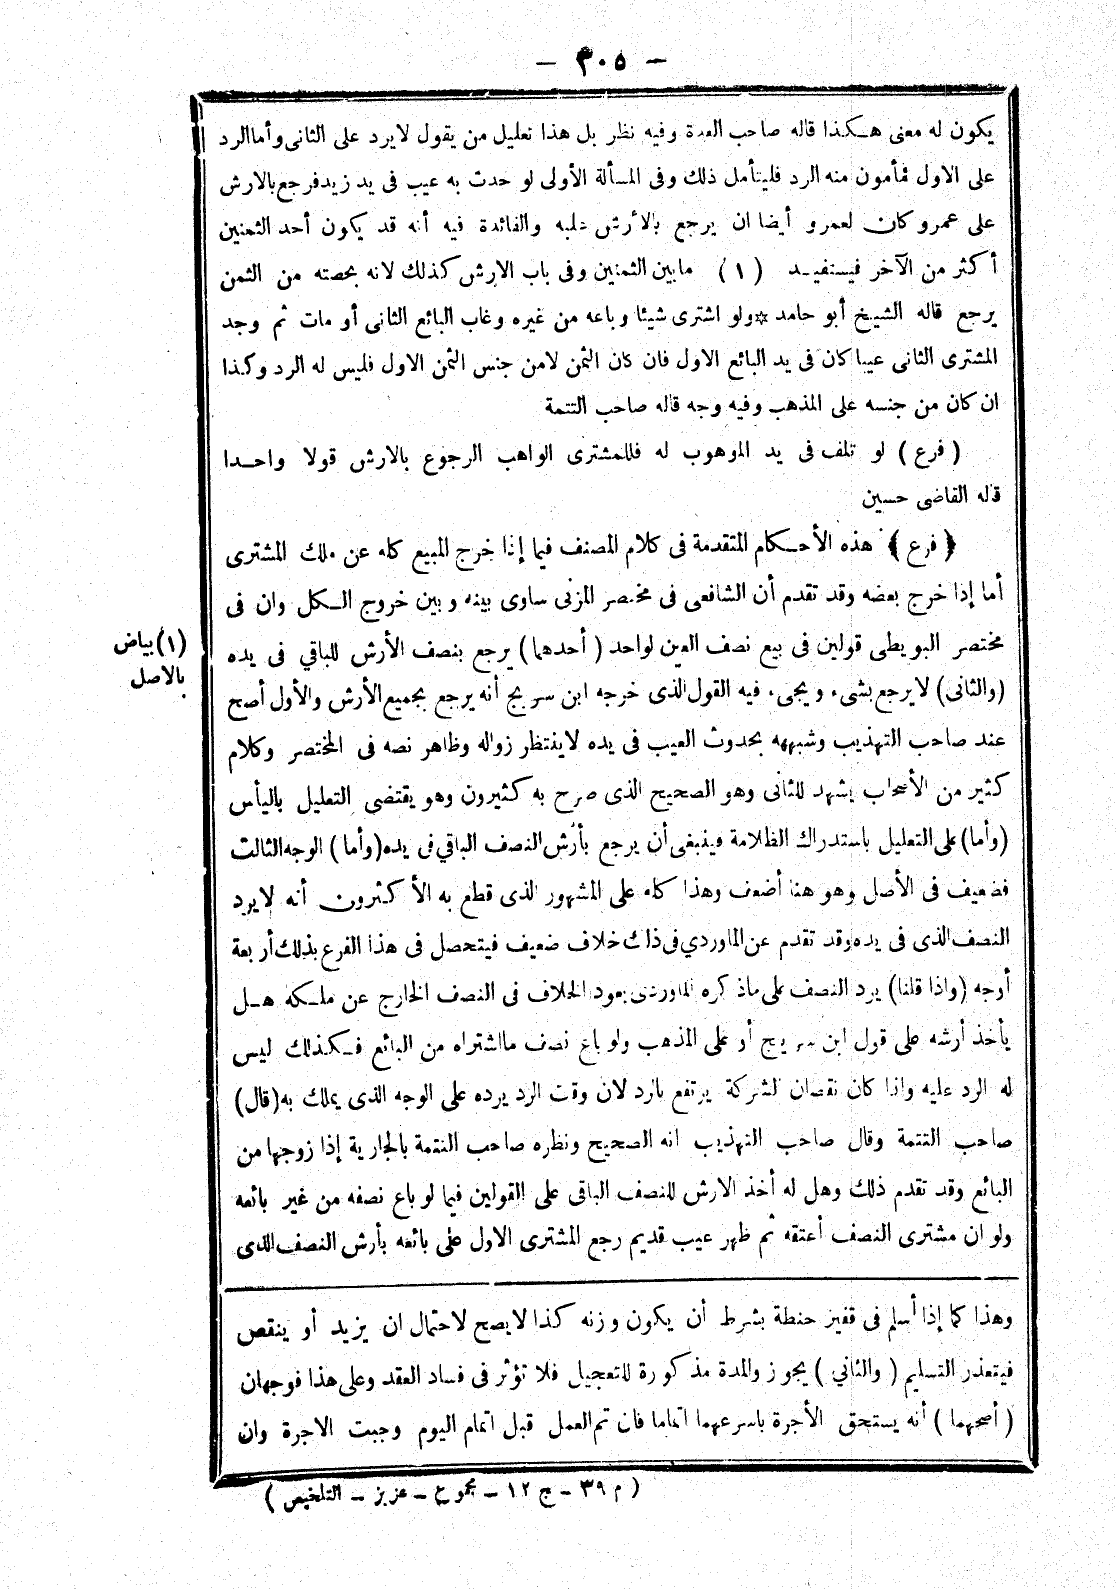 — ٣٠٥ —
يكون له معنى هكذا قاله صاحب العدة وفيه نظر بل هذا تعليل من يقول لا يرد على الثانى وأما الرد
على الاول فمأمون منه الرد فليتأمل ذلك وفى المسألة الأولى لو حدث به عيب فى يد زيد فرجع بالارش
على عمرو كان لعمرو أيضا ان يرجع بالأرش عليه والفائدة فيه أنه قد يكون أحد الثمنين
أكثر من الآخر فيستفيد (١) مابين الثمنين وفى باب الارش كذلك لانه بحصته من الثمن
يرجع قاله الشيخ أبو حامد * ولو اشترى شيئا وباعه من غيره وغاب البائع الثانى أو مات ثم وجد
المشترى الثانى عيبا كان فى يد البائع الاول فان كان الثمن لامن جنس الثمن الاول فليس له الرد وكذا
ان كان من جنسه على المذهب وفيه وجه قاله صاحب التتمة
(فرع) لو تلف فى يد الموهوب له فللمشترى الواهب الرجوع بالارش قولا واحدا
قاله القاضى حسين
﴿فرع﴾ هذه الأحكام المتقدمة فى كلام المصنف فيما إذا خرج المبيع كله عن ملك المشترى
أما إذا خرج بعضه وقد تقدم أن الشافعى فى مختصر المزنى ساوى بينه وبين خروج الكل وان فى
مختصر البويطى قولين فى بيع نصف العين لواحد (أحدهما) يرجع بنصف الأرش للباقي فى يده
(والثانى) لا يرجع بشىء ويجىء فيه القول الذى خرجه ابن سريج أنه يرجع بجميع الأرش والأول أصح
عند صاحب التهذيب وشبهه بحدوث العيب فى يده لا ينتظر زواله وظاهر نصه فى المختصر وكلام
كثير من الأصحاب يشهد للثانى وهو الصحيح الذى صرح به كثيرون وهو يقتضى التعليل باليأس
(وأما) على التعليل باستدراك الظلامة فينبغى أن يرجع بأرش النصف الباقي فى يده (وأما) الوجه الثالث
فضعيف فى الأصل وهو هنا أضعف وهذا كله على المشهور الذى قطع به الأكثرون أنه لا يرد
النصف الذى فى يده وقد تقدم عن الماوردي فى ذلك خلاف ضعيف فيتحصل فى هذا الفرع بذلك أربعة
أوجه (واذا قلنا) يرد النصف على ماذكره الماوردى يعود الخلاف فى النصف الخارج عن ملكه هل
يأخذ أرشه على قول ابن سريج أو على المذهب ولو باع نصف مااشتراه من البائع فكذلك ليس
له الرد عليه واذا كان نقصان الشركة يرتفع بالرد لان وقت الرد يرده على الوجه الذى يملك به (قال)
صاحب التتمة وقال صاحب التهذيب انه الصحيح ونظره صاحب التتمة بالجارية إذا زوجها من
البائع وقد تقدم ذلك وهل له أخذ الارش للنصف الباقى على القولين فيما لو باع نصفه من غير بائعه
ولو ان مشترى النصف أعتقه ثم ظهر عيب قديم رجع المشترى الاول على بائعه بأرش النصف الذى
(١) بياض
بالاصل
وهذا كما إذا أسلم فى قفيز حنطة بشرط أن يكون وزنه كذا لايصح لاحتمال ان يزيد أو ينقص
فيتعذر التسليم (والثاني) يجوز والمدة مذكورة للتعجيل فلا تؤثر فى فساد العقد وعلى هذا فوجهان
(أصحهما) أنه يستحق الأجرة باسرعهما اتماما فان تم العمل قبل اتمام اليوم وجبت الاجرة وان
(م ٣٩ – ج ١٢ – مجموع – عزيز – التلخيص)